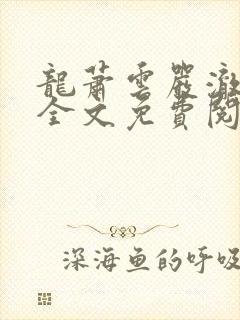 龍蕭雲嚴澈
全文免費閱
深海鱼的呼吸